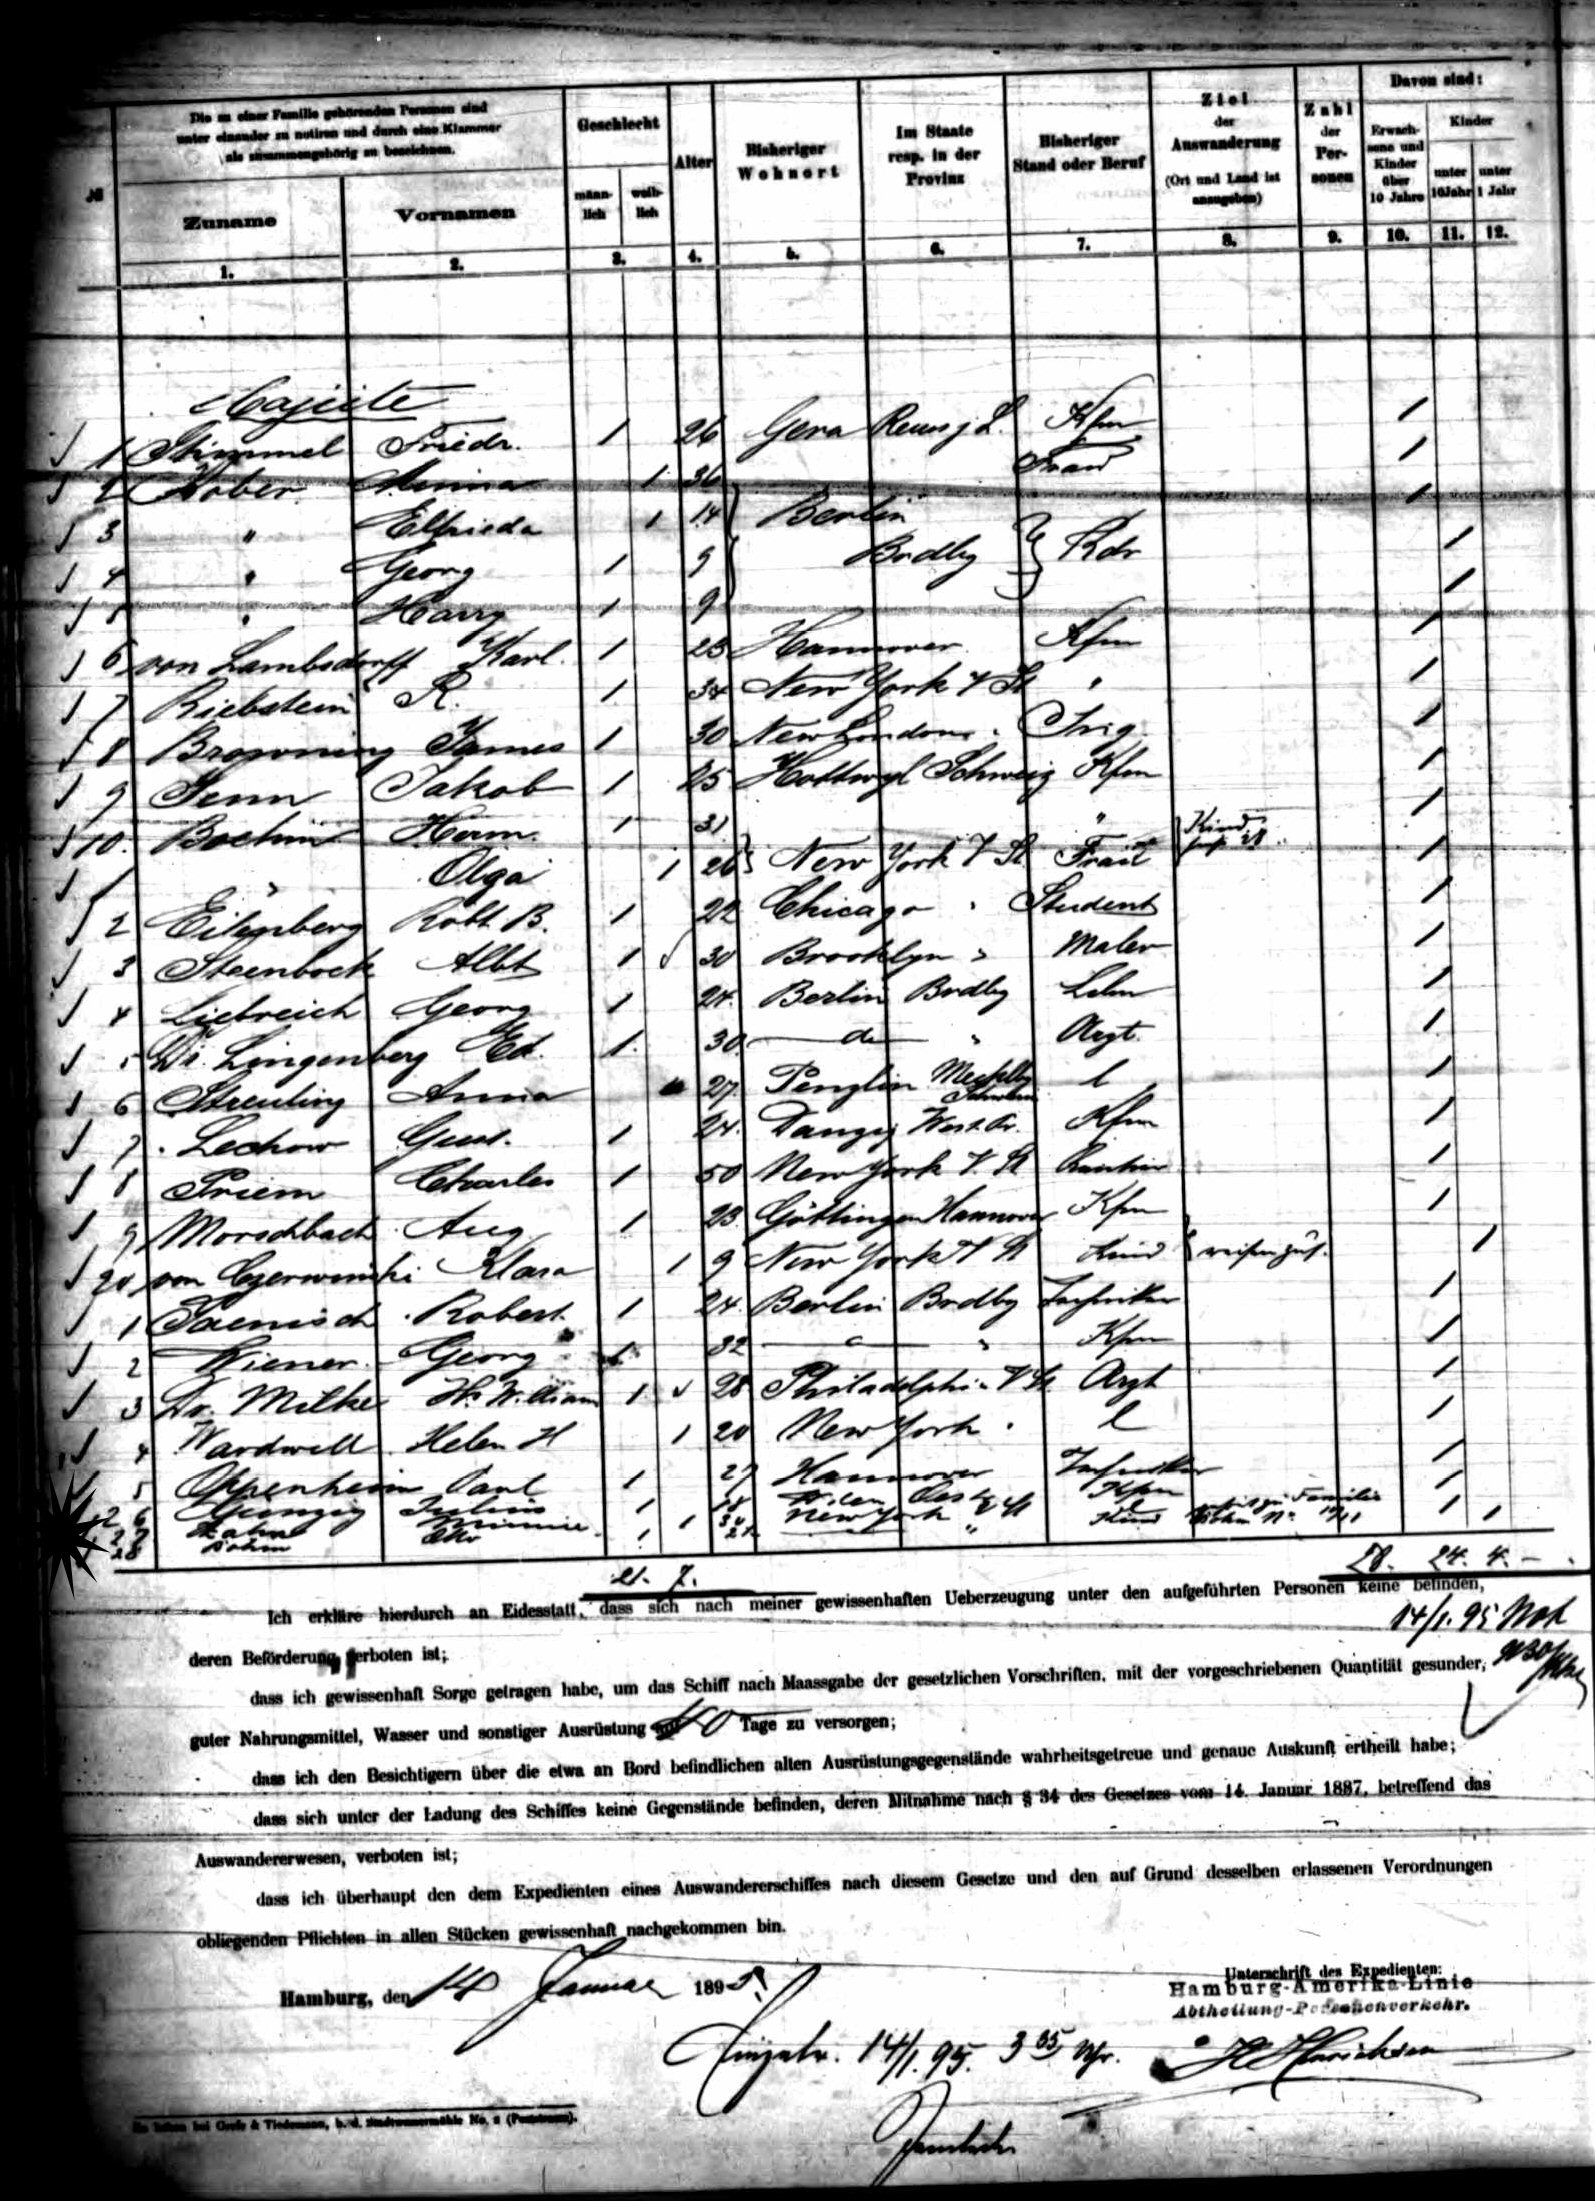 Die zu einer Familie gehörenden Personen sind
unter einander zu notiren und durch eine Klammer
als zusammengehörig zu bezeichnen.
Geschlecht
Alter
Bisheriger
Wohnort
Im Staate
resp. in der
Provinz
Bisheriger
Stand oder Beruf
Ziel
der
Auswanderung
(Ort und Land ist
anzugeben)
Zahl
der
Per-
sonen
Davon sind:
Erwach-
sene und
Kinder
über
10 Jahre
Kinder
unter
10 Jahr
unter
1 Jahr
№
Zuname
Vornamen
männ-
lich
weib-
lich
1. 2. 3. 4. 5. 6. 7. 8. 9. 10. 11. 12.
Cajüte
1 Stimmel Friedr. 1 26 Gera Reuss j. L. Kfm 1
2 Kober Minna 1 36 Frau 1
3 " Elfrieda 1 14 Berlin 1
4 " Georg 1 9 Brdbg Kdr 1
5 " Harry 1 9 1
6 von Lambsdorff Karl. 1 25 Hannover Kfm 1
7 Riebstein R. 1 34 New York V St " 1
8 Browning James 1 30 New London " 1
9 Senn Jakob 1 25 Hottwyl Schweiz Kfm 1
10. Herm. 1 31 " 1
1 " Olga 1 26 New York V St. Frau 1
2 Eilenberg Robt B. 1 22 Chicago " Student 1
3 Steenbock Albt 1 30 Brooklyn " Maler 1
4 Liebreich Georg 1 24. Berlin Brdbg 1
5 Dr. Lingenberg Ed. 1. 30. do " Arzt. 1
6 Streuling Anna 27 Penzlin Mecklbg l 1
7 Lechow Gust. 1 24. Danzig West. Pr. Kfm 1
8 Priem Charles 1 50 New York V. St 1
9 Morschbach Aug 1 23 Göttingen Hannover Kfm 1
20 von Czerwinski Klara 1 9 New York V St Kind 1
1 Jaenisch Robert 1 24. Berlin Brdbg Techniker 1
2 Wiener Georg 1 32 " Kfm 1
3 Dr. Milke H. William 1 28 Philadelphia V St. Arzt 1
4 Wardwell Helen H 1 20 New York " l 1
5 Oppenheim Paul 1 27 Hannover Techniker 1
26 Julius 1 Kfm 1
27 Minnie 1 New York V St
28 Otto 1 " Kind 1
21. 7.
28. 24. 4. -
Ich erkläre hierdurch an Eidesstatt, dass sich nach meiner gewissenhaften Ueberzeugung unter den aufgeführten Personen keine befinden,
14/1. 95
deren Beförderung verboten ist;
dass ich gewissenhaft Sorge getragen habe, um das Schiff nach Maassgabe der gesetzlichen Vorschriften, mit der vorgeschriebenen Quantität gesunder,
guter Nahrungsmittel, Wasser und sonstiger Ausrüstung Tage zu versorgen;
dass ich den Besichtigern über die etwa an Bord befindlichen alten Ausrüstungsgegenstände wahrheitsgetreue und genaue Auskunft ertheilt habe;
dass sich unter der Ladung des Schiffes keine Gegenstände befinden, deren Mitnahme nach § 34 des Gesetzes vom 14. Januar 1887, betreffend das
Auswandererwesen, verboten ist;
dass ich überhaupt den dem Expedienten eines Auswandererschiffes nach diesem Gesetze und den auf Grund desselben erlassenen Verordnungen
obliegenden Pflichten in allen Stücken gewissenhaft nachgekommen bin.
Hamburg, den 14 Januar 1895.
Unterschrift des Expedienten:
Hamburg-Amerika-Linie
Abtheilung-Personenverkehr.
14/1. 95. 3 55
H Hinrichsen
Zu haben bei Grefe & Tiedemann, b. d. Stadtwassermühle No. 2 (Poststrasse).